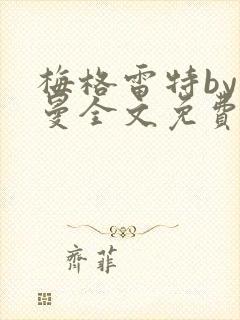 梅格雷特by
曼全文免費
齊菲